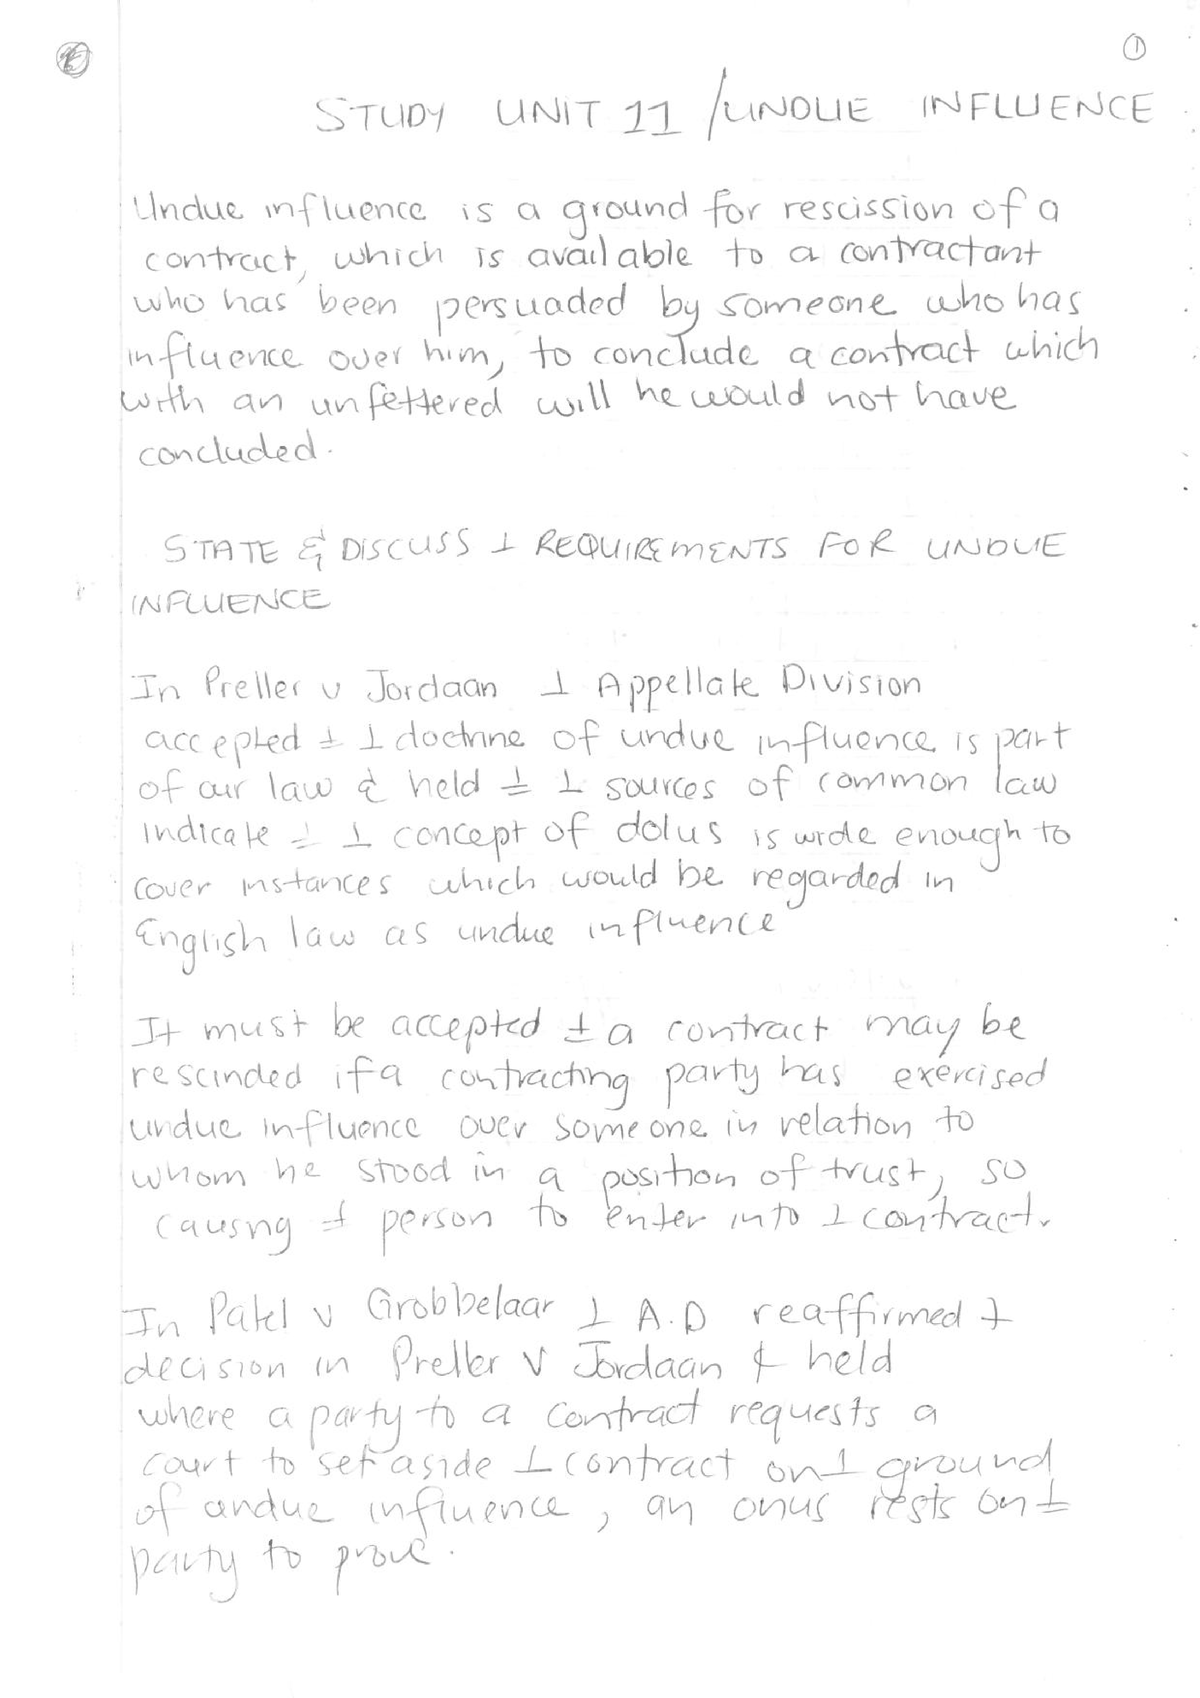 ①
STUDY UNIT 11 / UNDUE INFLUENCE
Undue influence is a ground for rescission of a
contract, which is available to a contractant
who has been persuaded by someone who has
influence over him, to conclude a contract which
with an unfettered will he would not have
concluded.
STATE & DISCUSS ⊥ REQUIREMENTS FOR UNDUE
INFLUENCE
In Preller v Jordaan ⊥ Appellate Division
accepted ± ⊥ doctrine of undue influence is part
of our law & held ± ⊥ sources of common law
indicate ± ⊥ concept of dolus is wide enough to
cover instances which would be regarded in
English law as undue influence
It must be accepted ± a contract may be
rescinded if a contracting party has exercised
undue influence over someone in relation to
whom he stood in a position of trust, so
causing ± person to enter into ⊥ contract.
In Patel v Grobbelaar ⊥ A.D reaffirmed ⊥
decision in Preller v Jordaan & held
where a party to a contract requests a
court to set aside ⊥ contract on ⊥ ground
of undue influence, an onus rests on ±
party to prove.